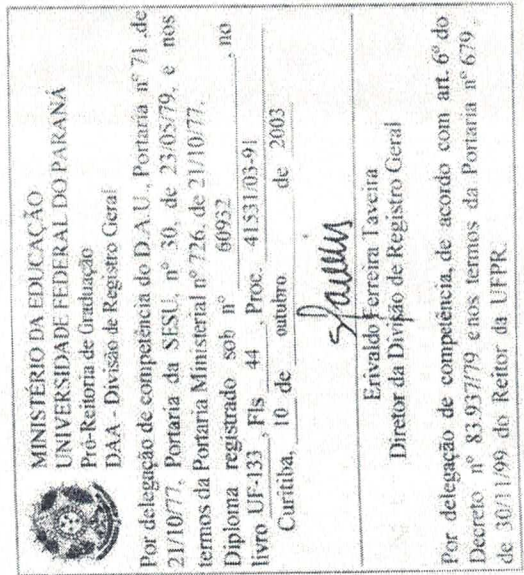 MINISTÉRIO DA EDUCAÇÃO
UNIVERSIDADE FEDERAL DO PARANÁ
Pró-Reitoria de Graduação
DAA - Divisão de Registro Geral
Por delegação de competência do D.A.U., Portaria nº 71 de
21/10/77, Portaria da SESU, nº 30, de 23/05/79, e nos
termos da Portaria Ministerial nº 726, de 21/10/77.
Diploma registrado sob nº 60932, no
livro UF-133, Fls 44, Proc. 41531/03-91
Curitiba, 10 de outubro de 2003
Erivaldo Ferreira Taveira
Diretor da Divisão de Registro Geral
Por delegação de competência, de acordo com art. 6º do
Decreto nº 83.937/79 e nos termos da Portaria nº 679
de 30/11/99 do Reitor da UFPR.